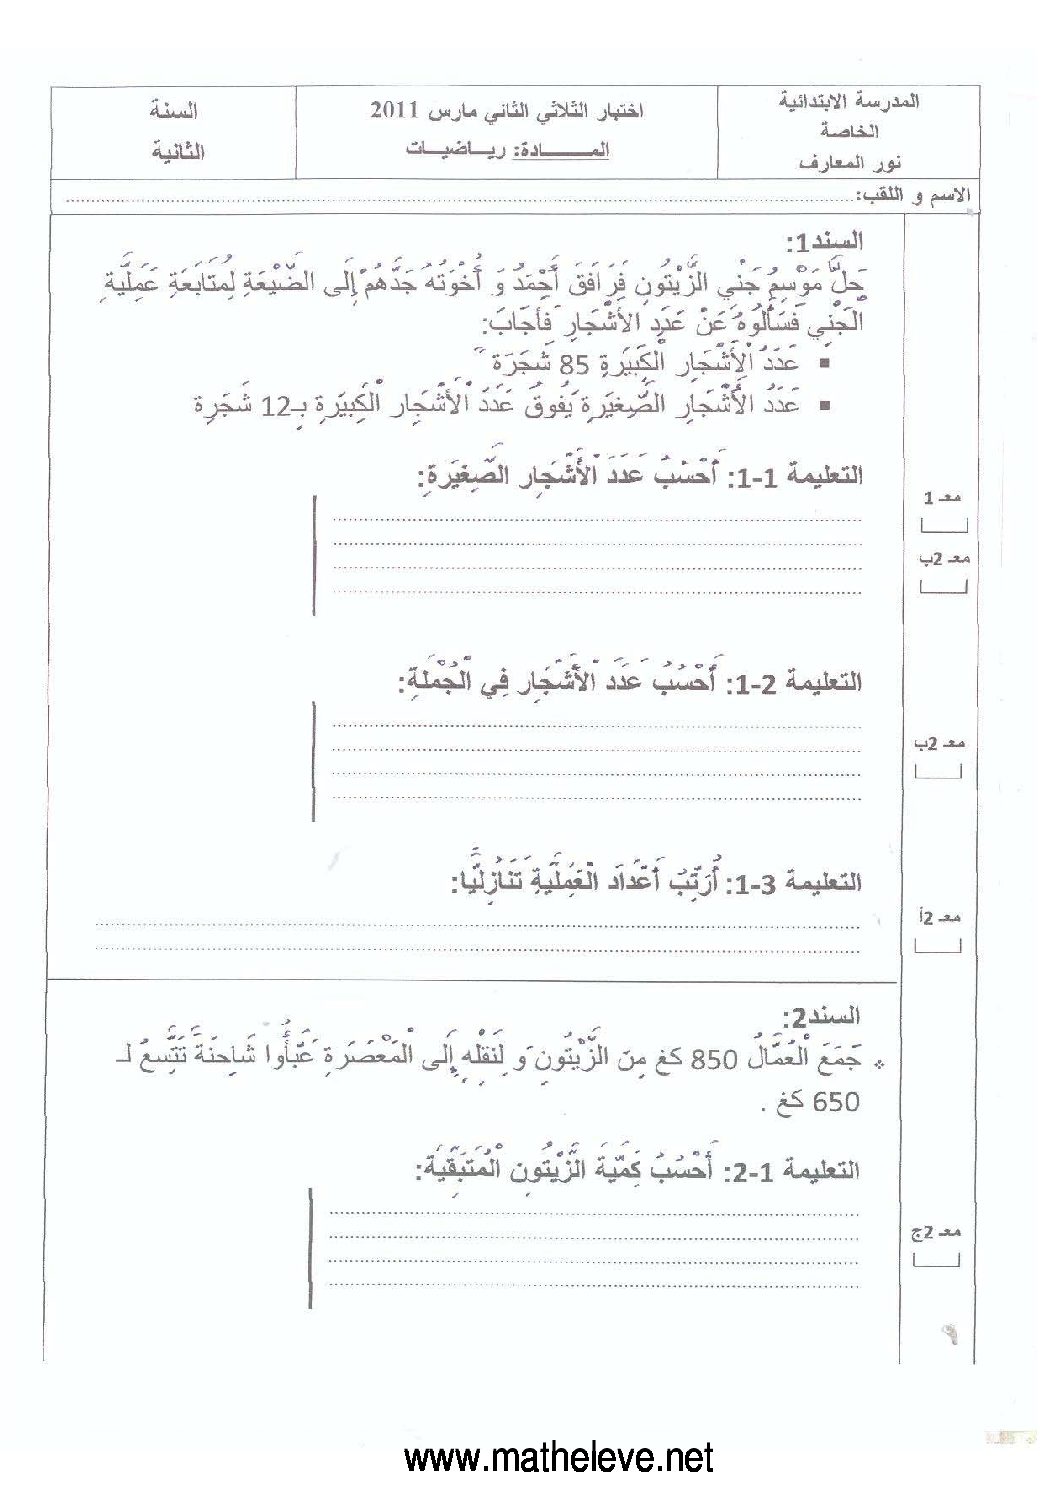 المدرسة الابتدائية
الخاصة
نور المعارف
اختبار الثلاثي الثاني مارس 2011
المـــــادة: ريـــاضيـــات
السنة
الثانية
الاسم و اللقب:
السند1:
حَلَّ مَوْسِمُ جَنْيِ الزَّيْتُونِ فَرَافَقَ أَحْمَدُ وَ أَخْوَتُهُ جَدَّهُمْ إِلَى الضَّيْعَةِ لِمُتَابَعَةِ عَمَلِيَّةِ
الْجَنْيِ فَسَأَلُوهُ عَنْ عَدَدِ الأَشْجَارِ فَأَجَابَ:
▪ عَدَدُ الْأَشْجَارِ الْكَبِيَرةِ 85 شَجَرَة
▪ عَدَدُ الأَشْجَارِ الصَّغِيَرةِ يَفُوقُ عَدَدَ الْأَشْجَارِ الْكَبِيَرةِ بِـ12 شَجَرة
التعليمة 1-1: أَحْسُبُ عَدَدَ الْأَشْجَارِ الصَّغِيَرةِ:
معـ 1
معـ 2ب
التعليمة 2-1: أَحْسُبُ عَدَدَ الْأَشْجَارِ فِي الْجُمْلَةِ:
معـ 2ب
التعليمة 3-1: أُرَتِّبُ أَعْدَادَ الْعَمَلِيَّةِ تَنَازُلِيًّا:
معـ 2أ
السند2:
جَمَعَ الْعُمَّالُ 850 كغ مِنَ الزَّيْتُونِ وَ لِنَقْلِهِ إِلَى الْمَعْصَرَةِ عَبَّأُوا شَاحِنَةً تَتَّسِعُ لـ
650 كغ .
التعليمة 1-2: أَحْسُبُ كَمِّيَةَ الزَّيْتُونِ الْمُتَبَقِّيَةِ:
معـ 2ج
www.matheleve.net